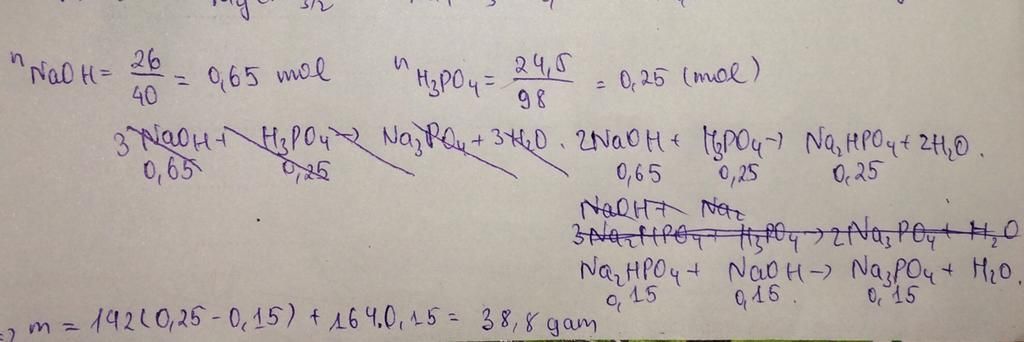 3/2
nNaOH = 26/40 = 0,65 mol nH3PO4 = 24,5/98 = 0,25 (mol)
3NaOH + H3PO4 → Na3PO4 + 3H2O. 2NaOH + H3PO4 → Na2HPO4 + 2H2O.
0,65 0,25 0,65 0,25 0,25
NaOH + Na2
3Na2HPO4 + H3PO4 → 2Na3PO4 + H2O
Na2HPO4 + NaOH → Na3PO4 + H2O.
0,15 0,15. 0,15
=> m = 142(0,25 - 0,15) + 164.0,15 = 38,8 gam